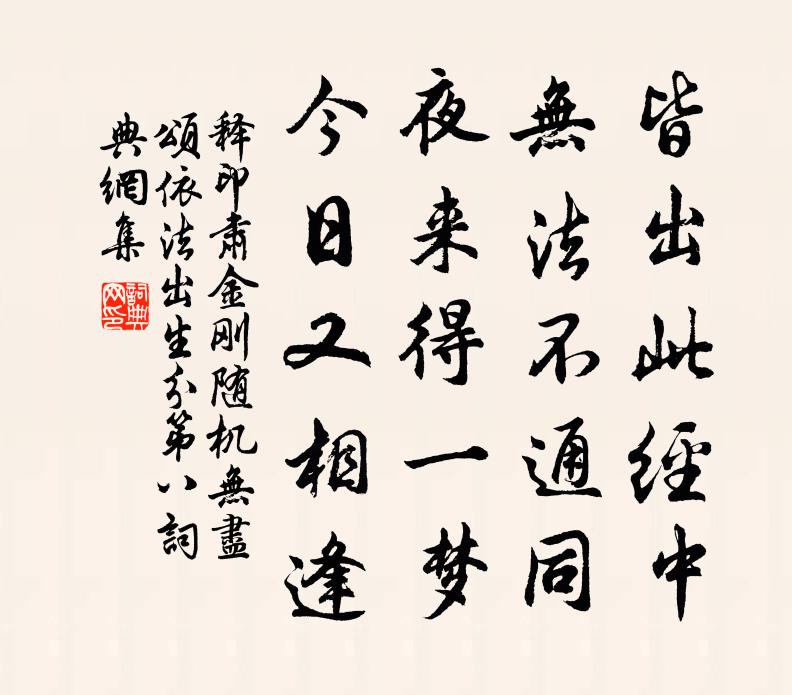 皆出此經中
無法不通同
夜来得一梦
今日又相逢
释印肃金刚随机無盡
頌依法出生分第八詞
典網集
詞典
网印